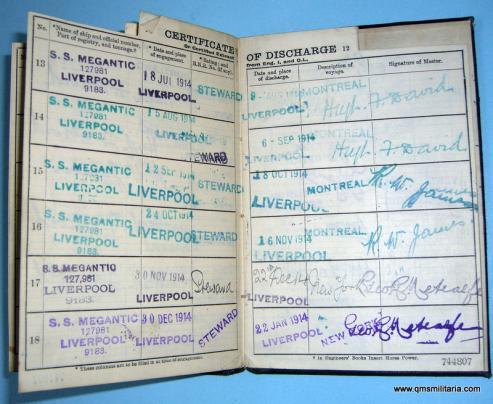 CERTIFICATE
or Certified Extract
OF DISCHARGE 12
from Eng. 1, and O.L.
No.
*Name of ship and official number,
Port of registry, and tonnage.
Date and place
of engagement.
*Rating; and
Date and place
of discharge.
Description of
voyage.
Signature of Master.
13
S.S. MEGANTIC
127981
LIVERPOOL
9183.
18 JUL 1914
LIVERPOOL
STEWARD
AUG 1914
LIVERPOOL
MONTREAL
Hugh F David
14
S.S. MEGANTIC
127981
LIVERPOOL
9183.
15 AUG 1914
LIVERPOOL
STEWARD
6 - SEP 1914
LIVERPOOL
MONTREAL
Hugh F David
15
S.S. MEGANTIC
LIVERPOOL
9183.
12 SEP 1914
LIVERPOOL
STEWARD
18 OCT 1914
LIVERPOOL
MONTREAL
R. W. James
16
S.S. MEGANTIC
127981
LIVERPOOL
9183.
24 OCT 1914
LIVERPOOL
STEWARD
16 NOV 1914
LIVERPOOL
MONTREAL
R. W. James
17
S.S. MEGANTIC
127,981
LIVERPOOL
9183.
30 NOV 1914
LIVERPOOL
Steward
22nd Dec 14
LIVERPOOL
New York
Geo R Metcalfe
18
S.S. MEGANTIC
127981
LIVERPOOL
9183.
30 DEC 1914
LIVERPOOL
STEWARD
22 JAN 1914
LIVERPOOL
NEW YORK
Geo R Metcalfe
* These columns are to be filled in at time of engagement.
* In Engineers' Books Insert Horse Power.
744807
www.qmsmilitaria.com